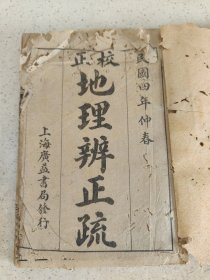 民國四年仲春
校正
地理辨正疏
上海廣益書局發行